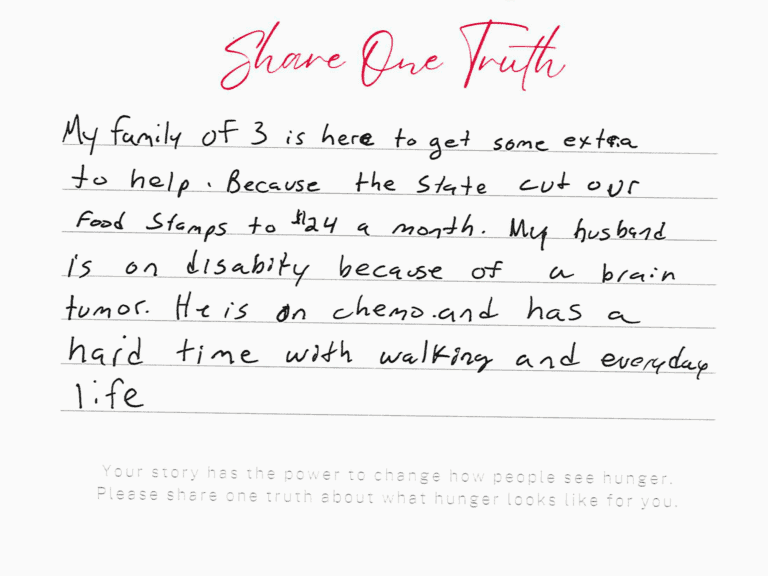 Share One Truth
My family of 3 is here to get some extra
to help. Because the State cut our
Food Stamps to $124 a month. My husband
is on disabity because of a brain
tumor. He is on chemo.and has a
hard time with walking and everyday
life
Your story has the power to change how people see hunger.
Please share one truth about what hunger looks like for you.